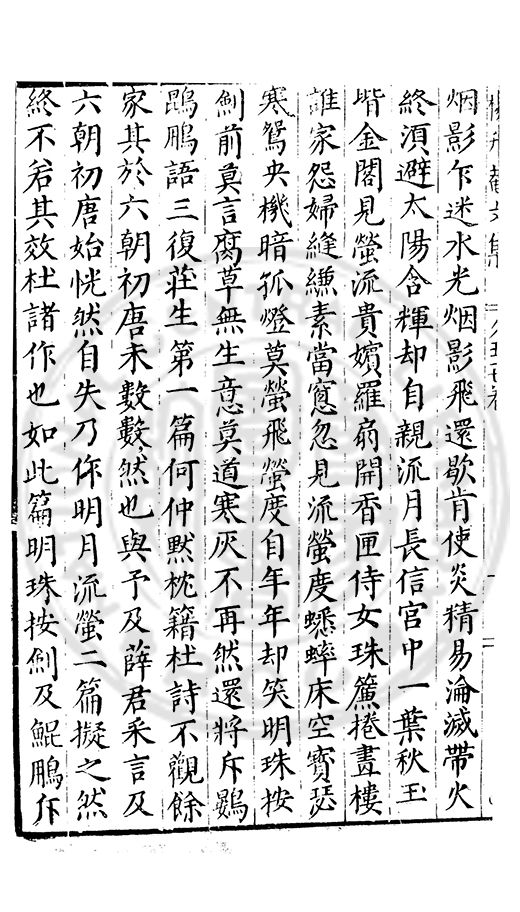 烟影乍迷水光烟影飛還歇肯使炎精易淪滅帶火
終湏避太陽含輝却自親流月長信宮中一葉秋玉
堦金閣見螢流貴嬪羅扇開香匣侍女珠簾捲晝樓
誰家怨婦縫縑素當窻忽見流螢度蟋蟀床空寳瑟
寒鴛央機暗孤燈莫螢飛螢度自年年却笑明珠按
劍前莫言腐草無生意莫道寒灰不再然還將斥鷃
鵾鵬語三復荘生第一篇何仲黙枕籍杜詩不觀餘
家其於六朝初唐未數數然也與予及薛君采言及
六朝初唐始恍然自失乃作明月流螢二篇擬之然
終不若其效杜諸作也如此篇明珠按劍及鯤鵬斥